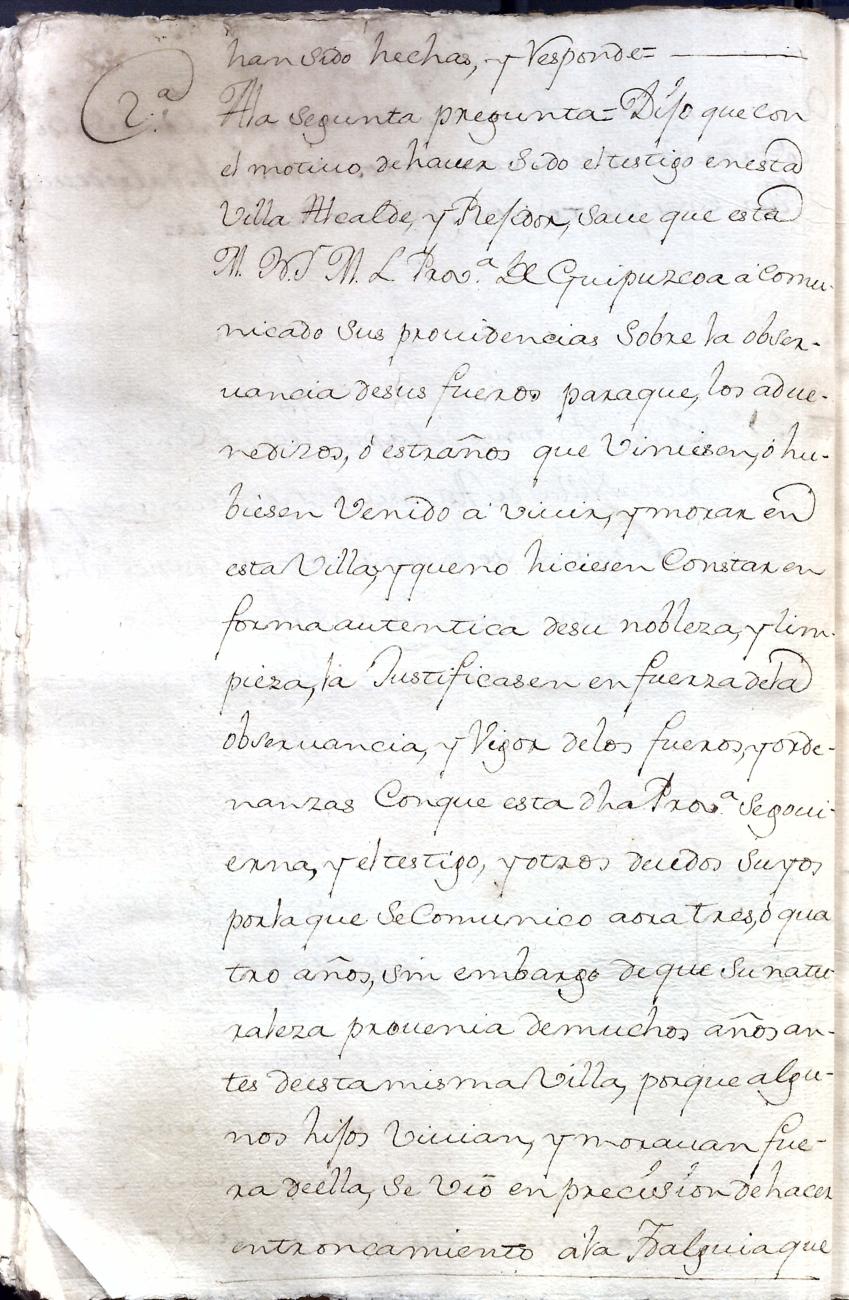 han sido hechas, y Responde=
2.ª
Ala segunta pregunta= Dijo que con
el motiuo, de hauer sido el testigo en esta
Villa Alcalde, y Rejidor, saue que esta
M. N. Y M. L Prov.ª De Guipuzcoa a comu-
nicado sus prouidencias sobre la obser-
uancia de sus fueros para que, los adue-
nedizos, ó estraños que Viniesen, ó hu-
biesen Venido a viuir, y morar en
esta Villa, y que no hiciesen Constar en
forma autentica de su nobleza, y lim-
pieza, la Justificasen en fuerza de la
obseruancia, y Vigor de los fueros, y orde-
nanzas Con que esta dha Prov.ª se goui-
erna, y el testigo, y otros deudos suyos
por la que se Comunico aora tres, o qua
tro años, sin embargo de que su natu
raleza prouenia de muchos años an-
tes de esta misma Villa, porque algu-
nos hijos Viuian, y morauan fue-
ra de ella, se vió en precision de hacer
entroncamiento á la Idalguia que